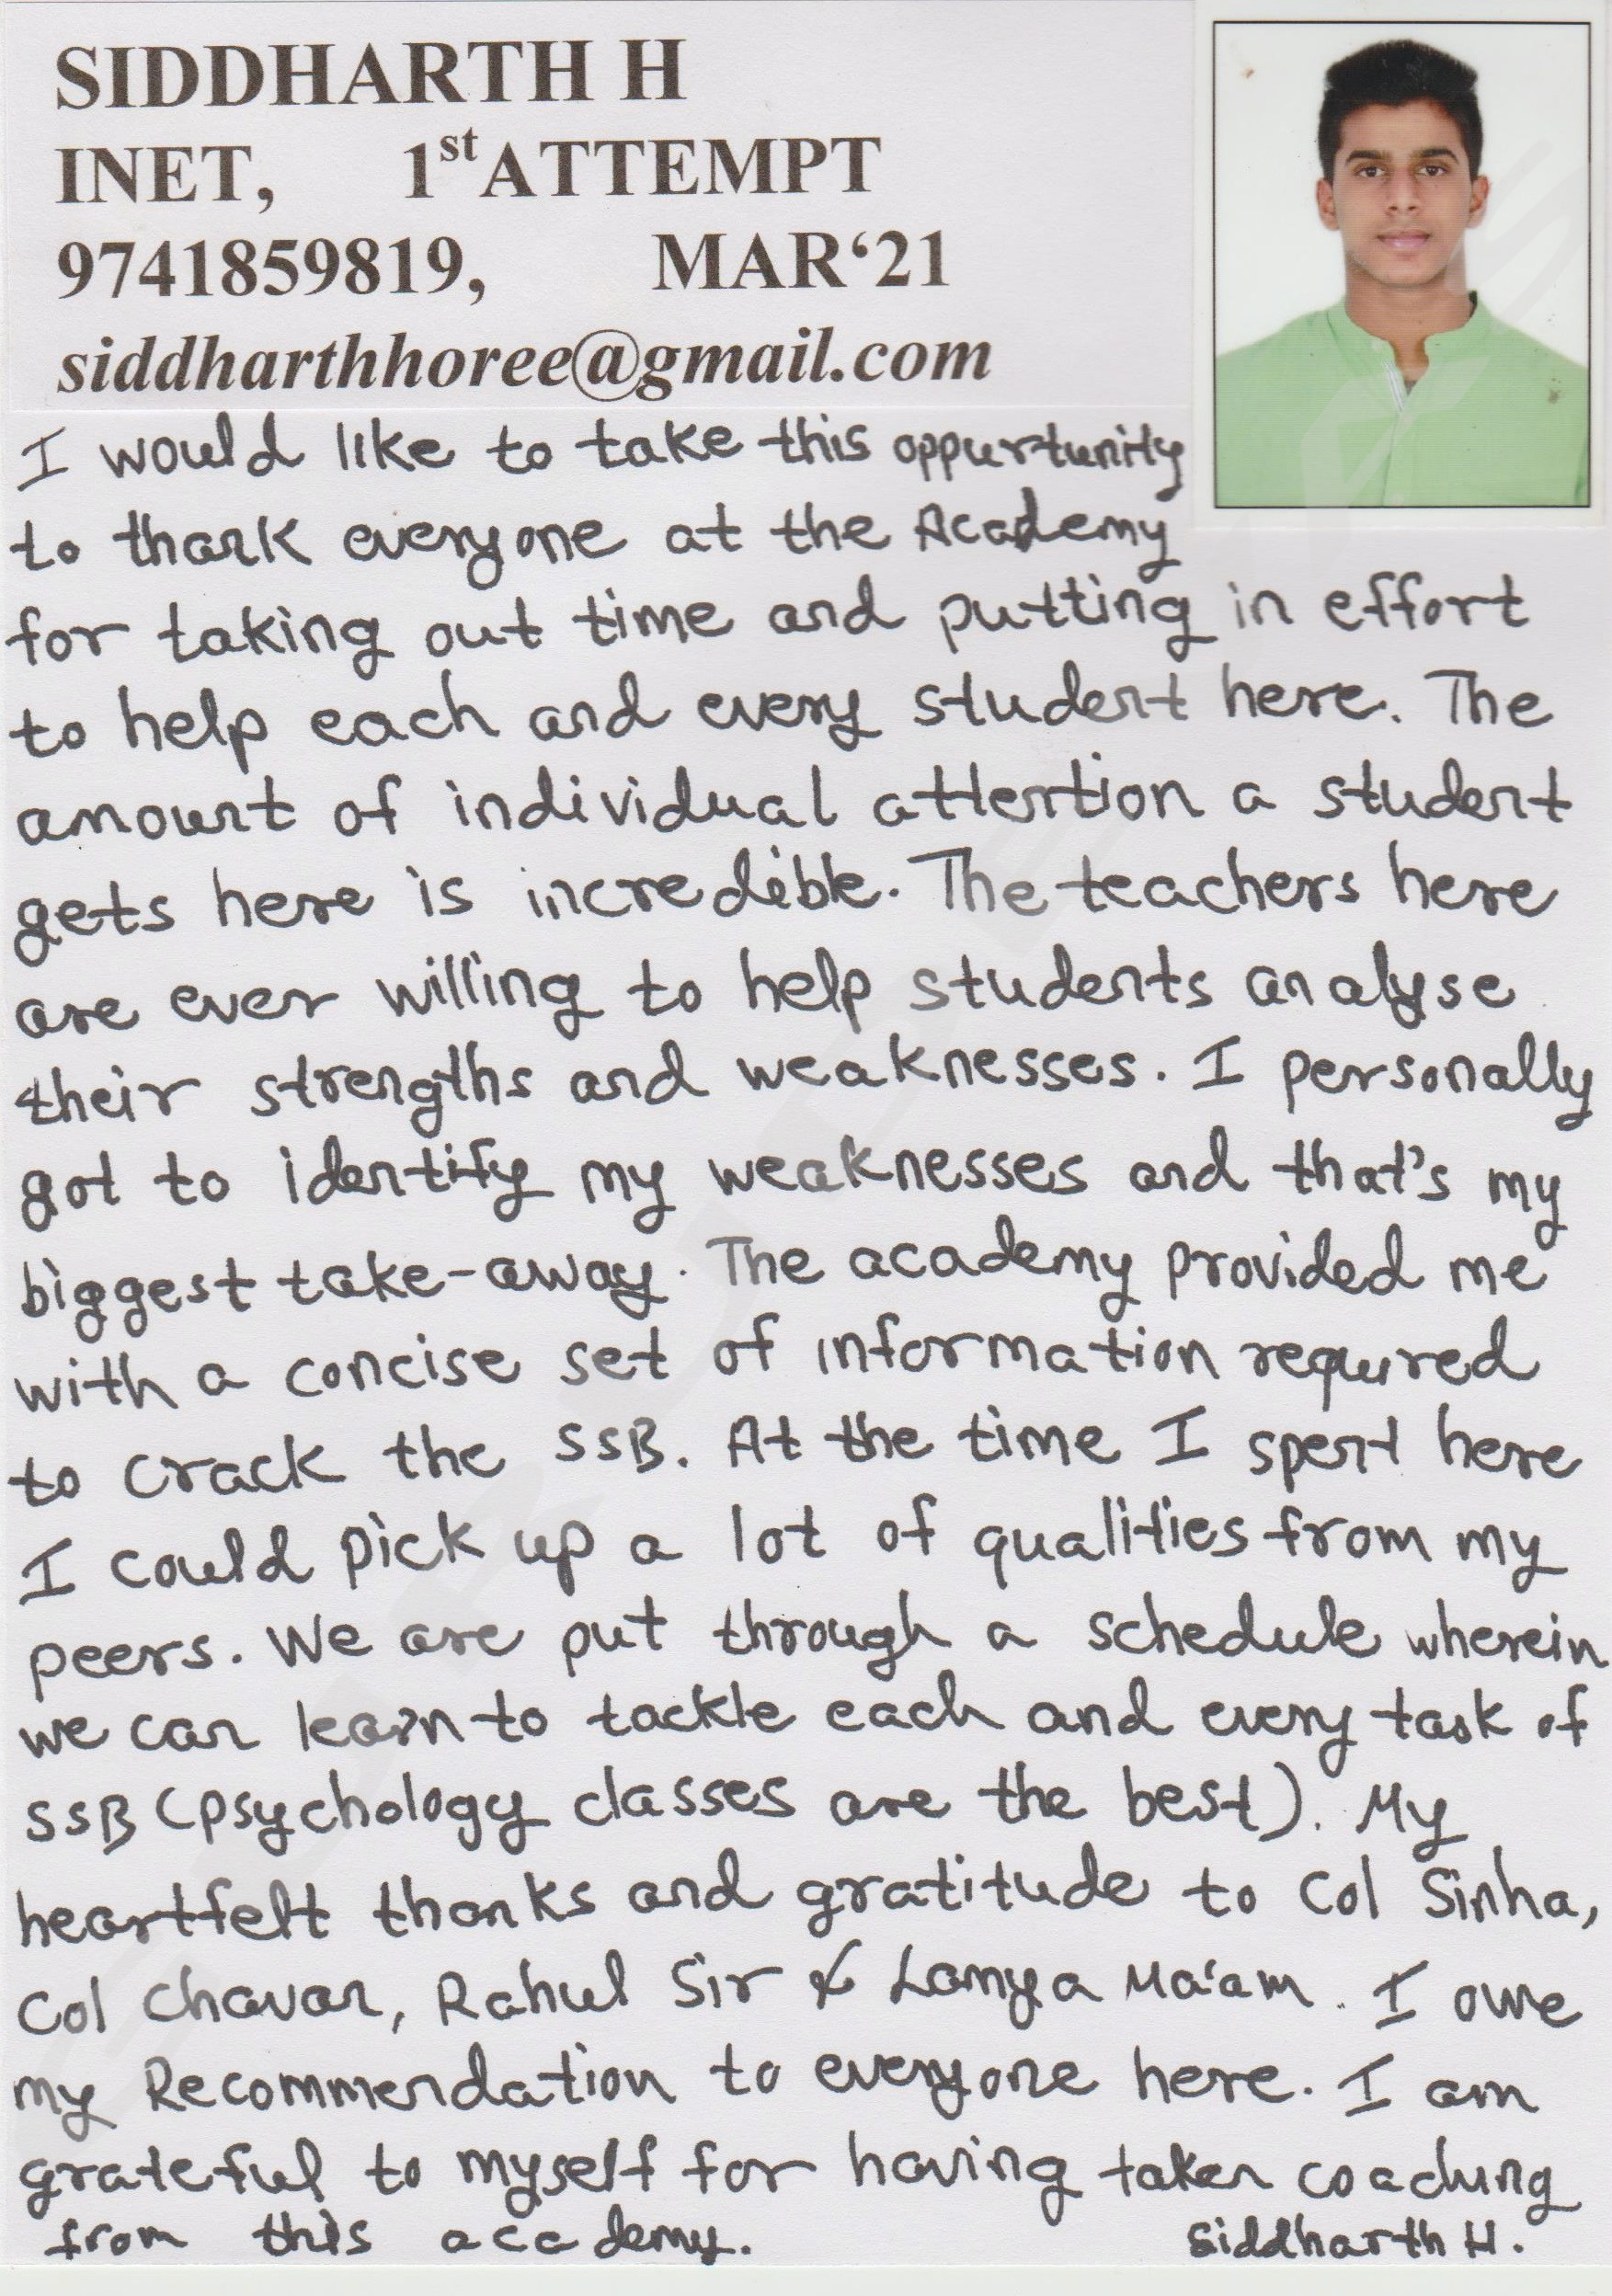 SIDDHARTH H
INET, 1st ATTEMPT
9741859819, MAR‘21
siddharthhoree@gmail.com
I would like to take this oppurtunity
to thank everyone at the Academy
for taking out time and putting in effort
to help each and every student here. The
amount of individual attention a student
gets here is incredible. The teachers here
are ever willing to help students analyse
their strengths and weaknesses. I personally
got to identify my weaknesses and that's my
biggest take-away. The academy provided me
with a concise set of information required
to crack the SSB. At the time I spent here
I could pick up a lot of qualities from my
peers. We are put through a schedule wherein
we can learn to tackle each and every task of
SSB (psychology classes are the best). My
heartfelt thanks and gratitude to Col Sinha,
Col Chavan, Rahul Sir & Lamya Ma'am. I owe
my Recommendation to everyone here. I am
grateful to myself for having taken coaching
from this academy. Siddharth H.